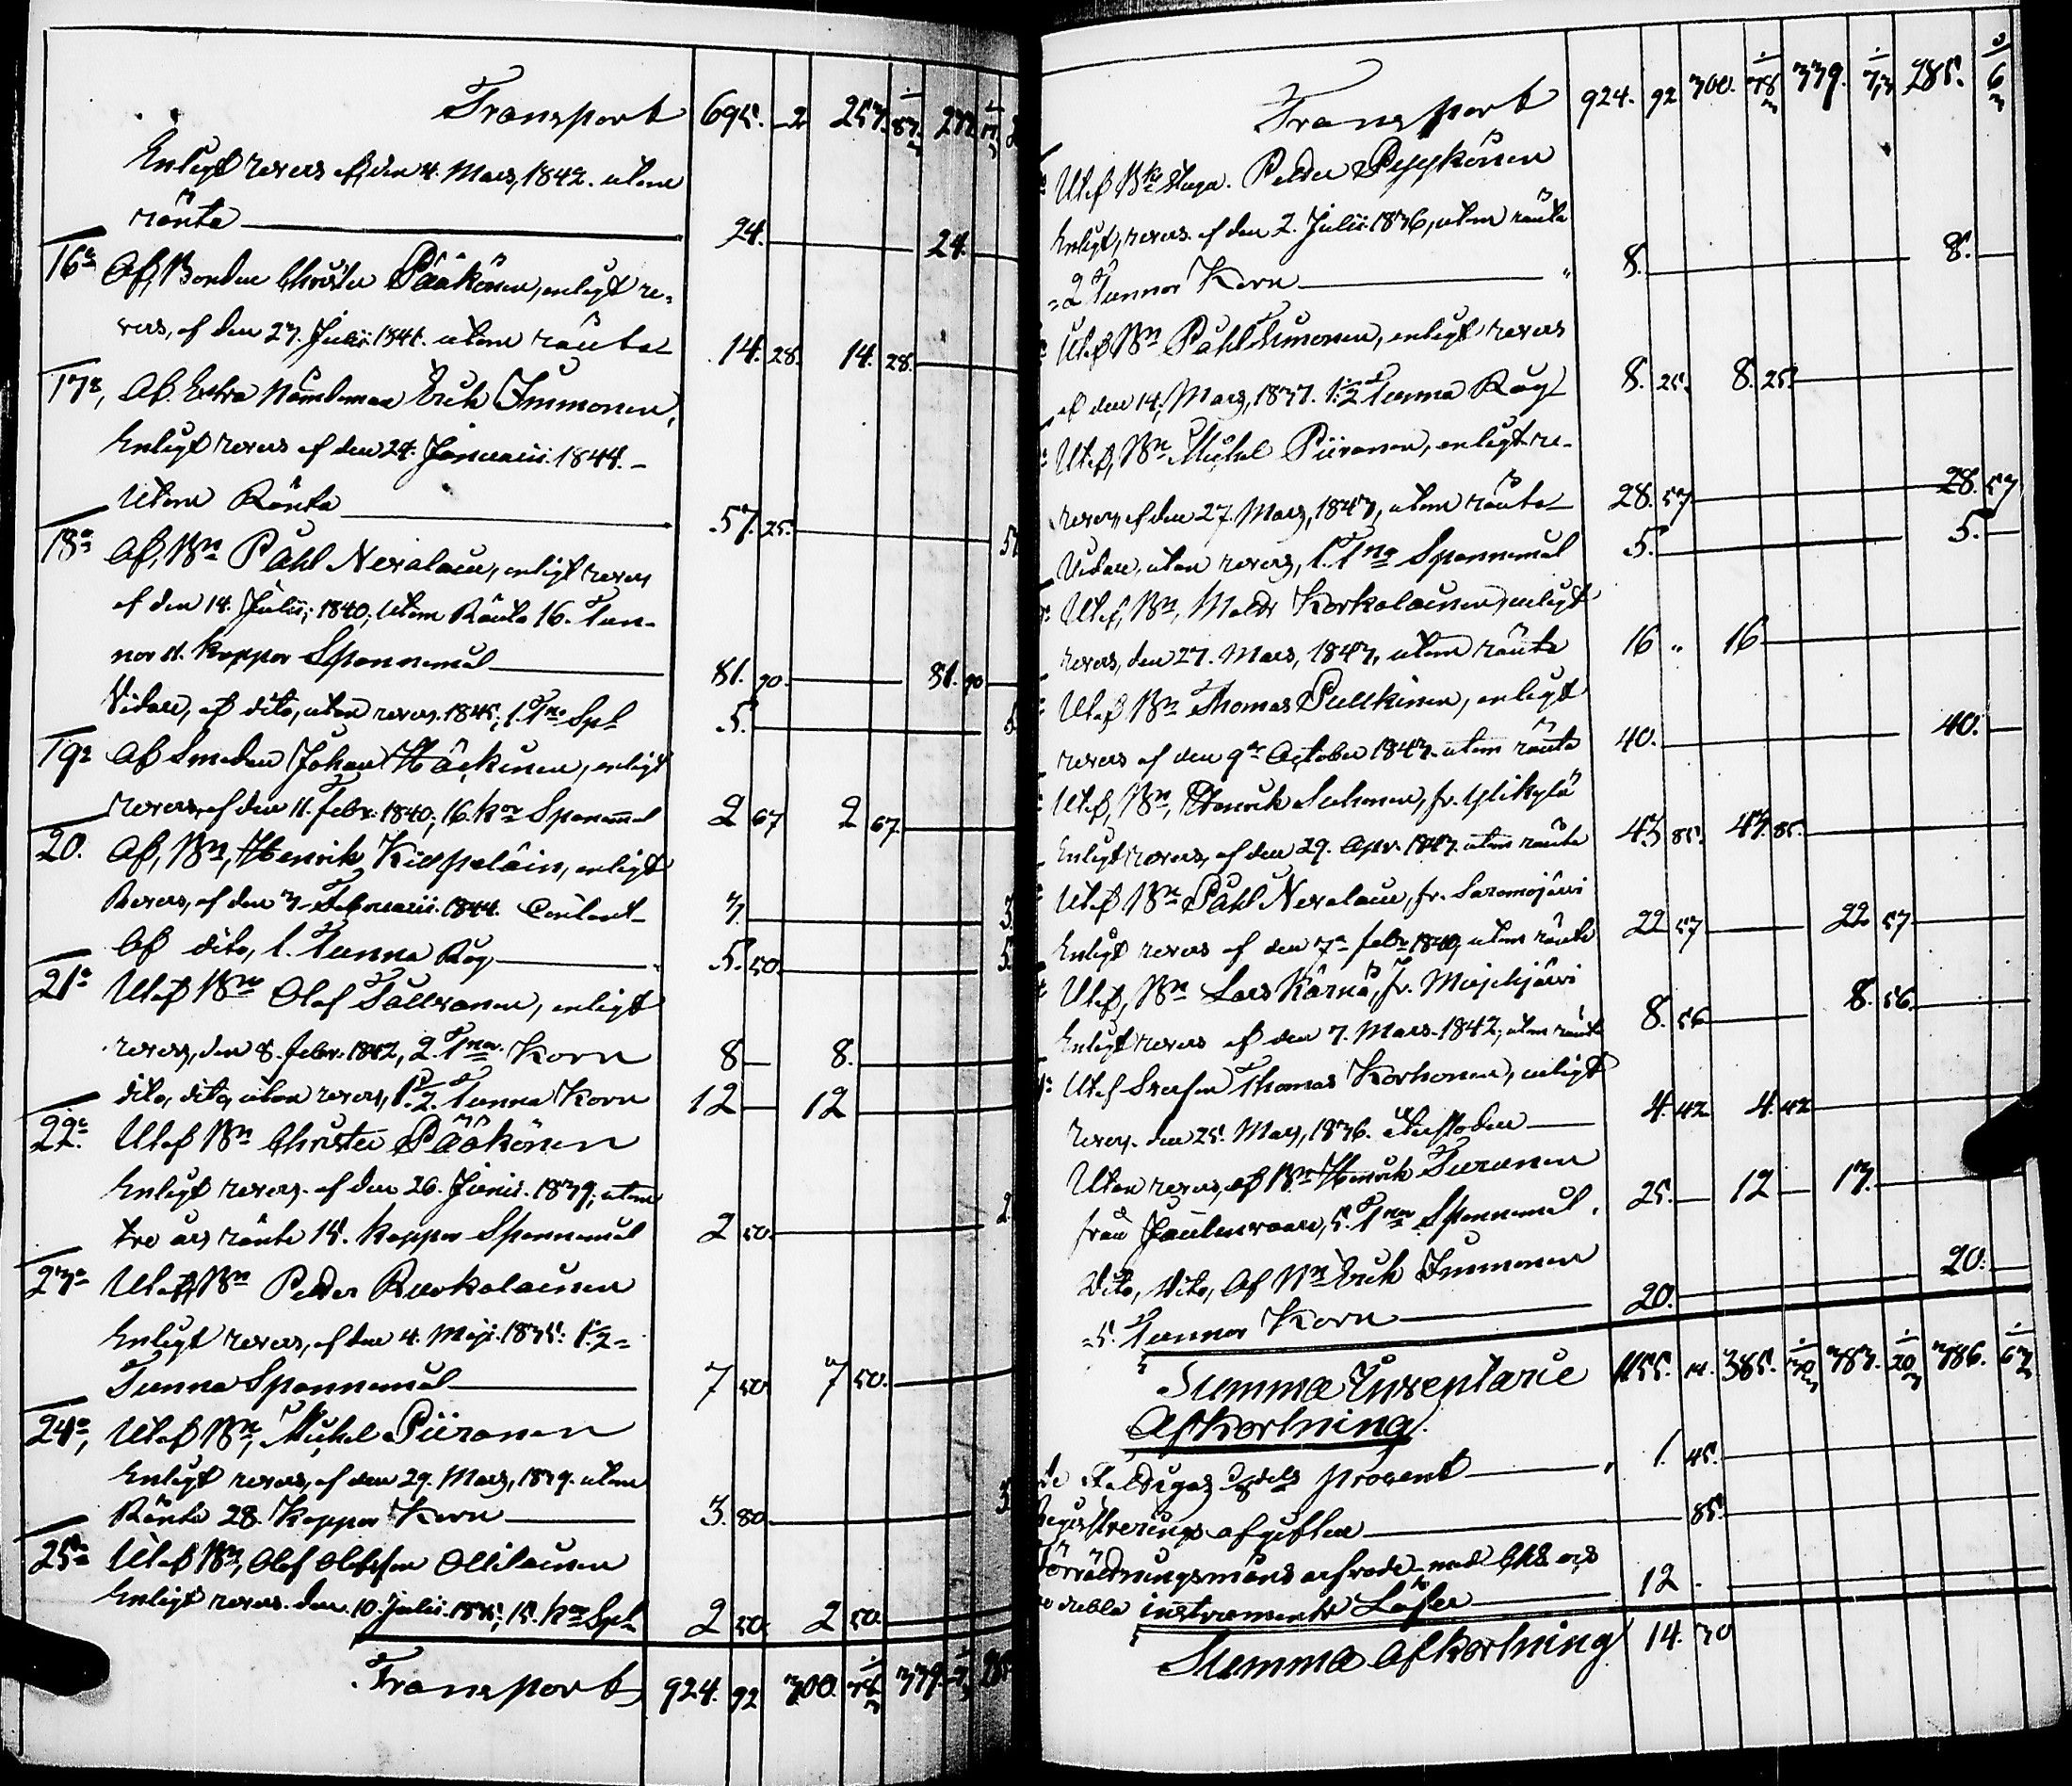 Transport 695. 2 257. 87. 277. 17.
Enligt revers af den 4. Mars, 1842. utom
ränta 24. 24.
16:) Af Bonden Christer Pääkönen, enligt re-
vers, af den 27. Julii 1841. utom ränta 14. 28. 14. 28.
17:, Af. Extra Nämdeman Erik Immonen,
Enligt revers af den 24. Januarii. 1844. -
Utom Ränta 57. 25.
18:) Af, Bn Påhl Nevalain, enligt revers
af den 14. Julii, 1840, Utom Ränta 16. Tun-
nor 11. Kappor Spannemål 81. 90. 81. 90
Vidare, af dito, utan revers. 1845, 1. Tna Spl 5.
19: Af Smeden Johan Häckinen, enligt
revers, af den 11. Febr: 1840, 16. Kor Spannemål 2 67 2 67.
20. Af, Bn, Henrik Kielpeläin, enligt
Revers, af den 3. Februarii. 1844. Contant 3.
Af dito, 1. Tunna Råg 5. 50.
21: Utaf Bn Olof Tallvanen, enligt
revers, den 8. Febr: 1842, 2. Tnor. Korn 8 8.
dito, dito, utan revers, Tunna Korn 12 12
22: Utaf Bn Christer Pääkönen
Enligt revers. af den 26. Junii. 1839, utom
tre års ränta 15. Kappor Spannemål 2 50. 2
23: Utaf, Bn Peder Ruokolainen
Enligt revers, af den 4. Maji. 1835: 1 1/2
Tunna Spannemål 7 50. 7 50.
24:, Utaf Bn, Michel Piiranen
Enligt revers, af den 29. Mars, 1839. utom
Ränta 28. Kappor Korn 3. 80. 3
25: Utaf Bn, Olof Olofson Ollilainen
Enligt revers. den. 10. Julii. 1835, 15. Kor Spl 2 50. 2 50.
Transport 924. 92 300. 78 339.
Transport 924. 92 300. 78 339. 73 285. 6
Utaf Peder Pyykönen
Enligt, revers. af den 2. Julii 1836, utom ränta
2 Tunnor Korn 8. 8.
Utaf Bn Påhl Immonen, enligt revers
af den 14. Mars, 1837. 1 1/2 Tunna Råg 8. 25. 8. 25.
Utaf, Bn Michel Piiranen, enligt re-
revers, af den 27. Mars, 1843, utom ränta 28. 57 28. 57
Vidare, utan revers, 1. Tna Spannemål 5. 5.
Utaf, Bn, Matts Korkalainen, enligt
revers, den 27. Mars, 1843, utom ränta 16 " 16
Utaf Bn Thomas Pulkkinen, enligt
revers af den 9de October 1843. utom ränta 40. 40.
Utaf, Bn, Henrik Suhonen, fr. Ylikylä
Enligt revers, af den 29. Apr. 1843. utom ränta 43 85. 43. 85.
Utaf Bn Påhl Nevalain, fr. Saramojärvi
Enligt revers af den 7de Febr: 1840, utom ränta 22 57 22 57
Utaf, Bn Lars Kärnä, fr.
Enligt revers af den 7. Mars. 1842, utom ränta 8. 56 8. 56.
Utaf Thomas Korhonen, enligt
revers. den 25. Maj, 1836. 4. 42 4. 42
Utan revers, af Bn Henrik Turunen
från 5. Tnor Spannemål. 25. 12 13.
Dito, Dito, Af Bn Erik Immonen
5. Tunnor Korn 20. 20.
Summa Inventarie 1155. 14. 385. 30 383. 20 386. 63
Afkortning.
de Fattigas procent 1. 45.
Registrerings afgiften 85.
Förrättningsmäns arfvode med
dubbla instruments Lösen 12
Summa Afkortning 14. 30